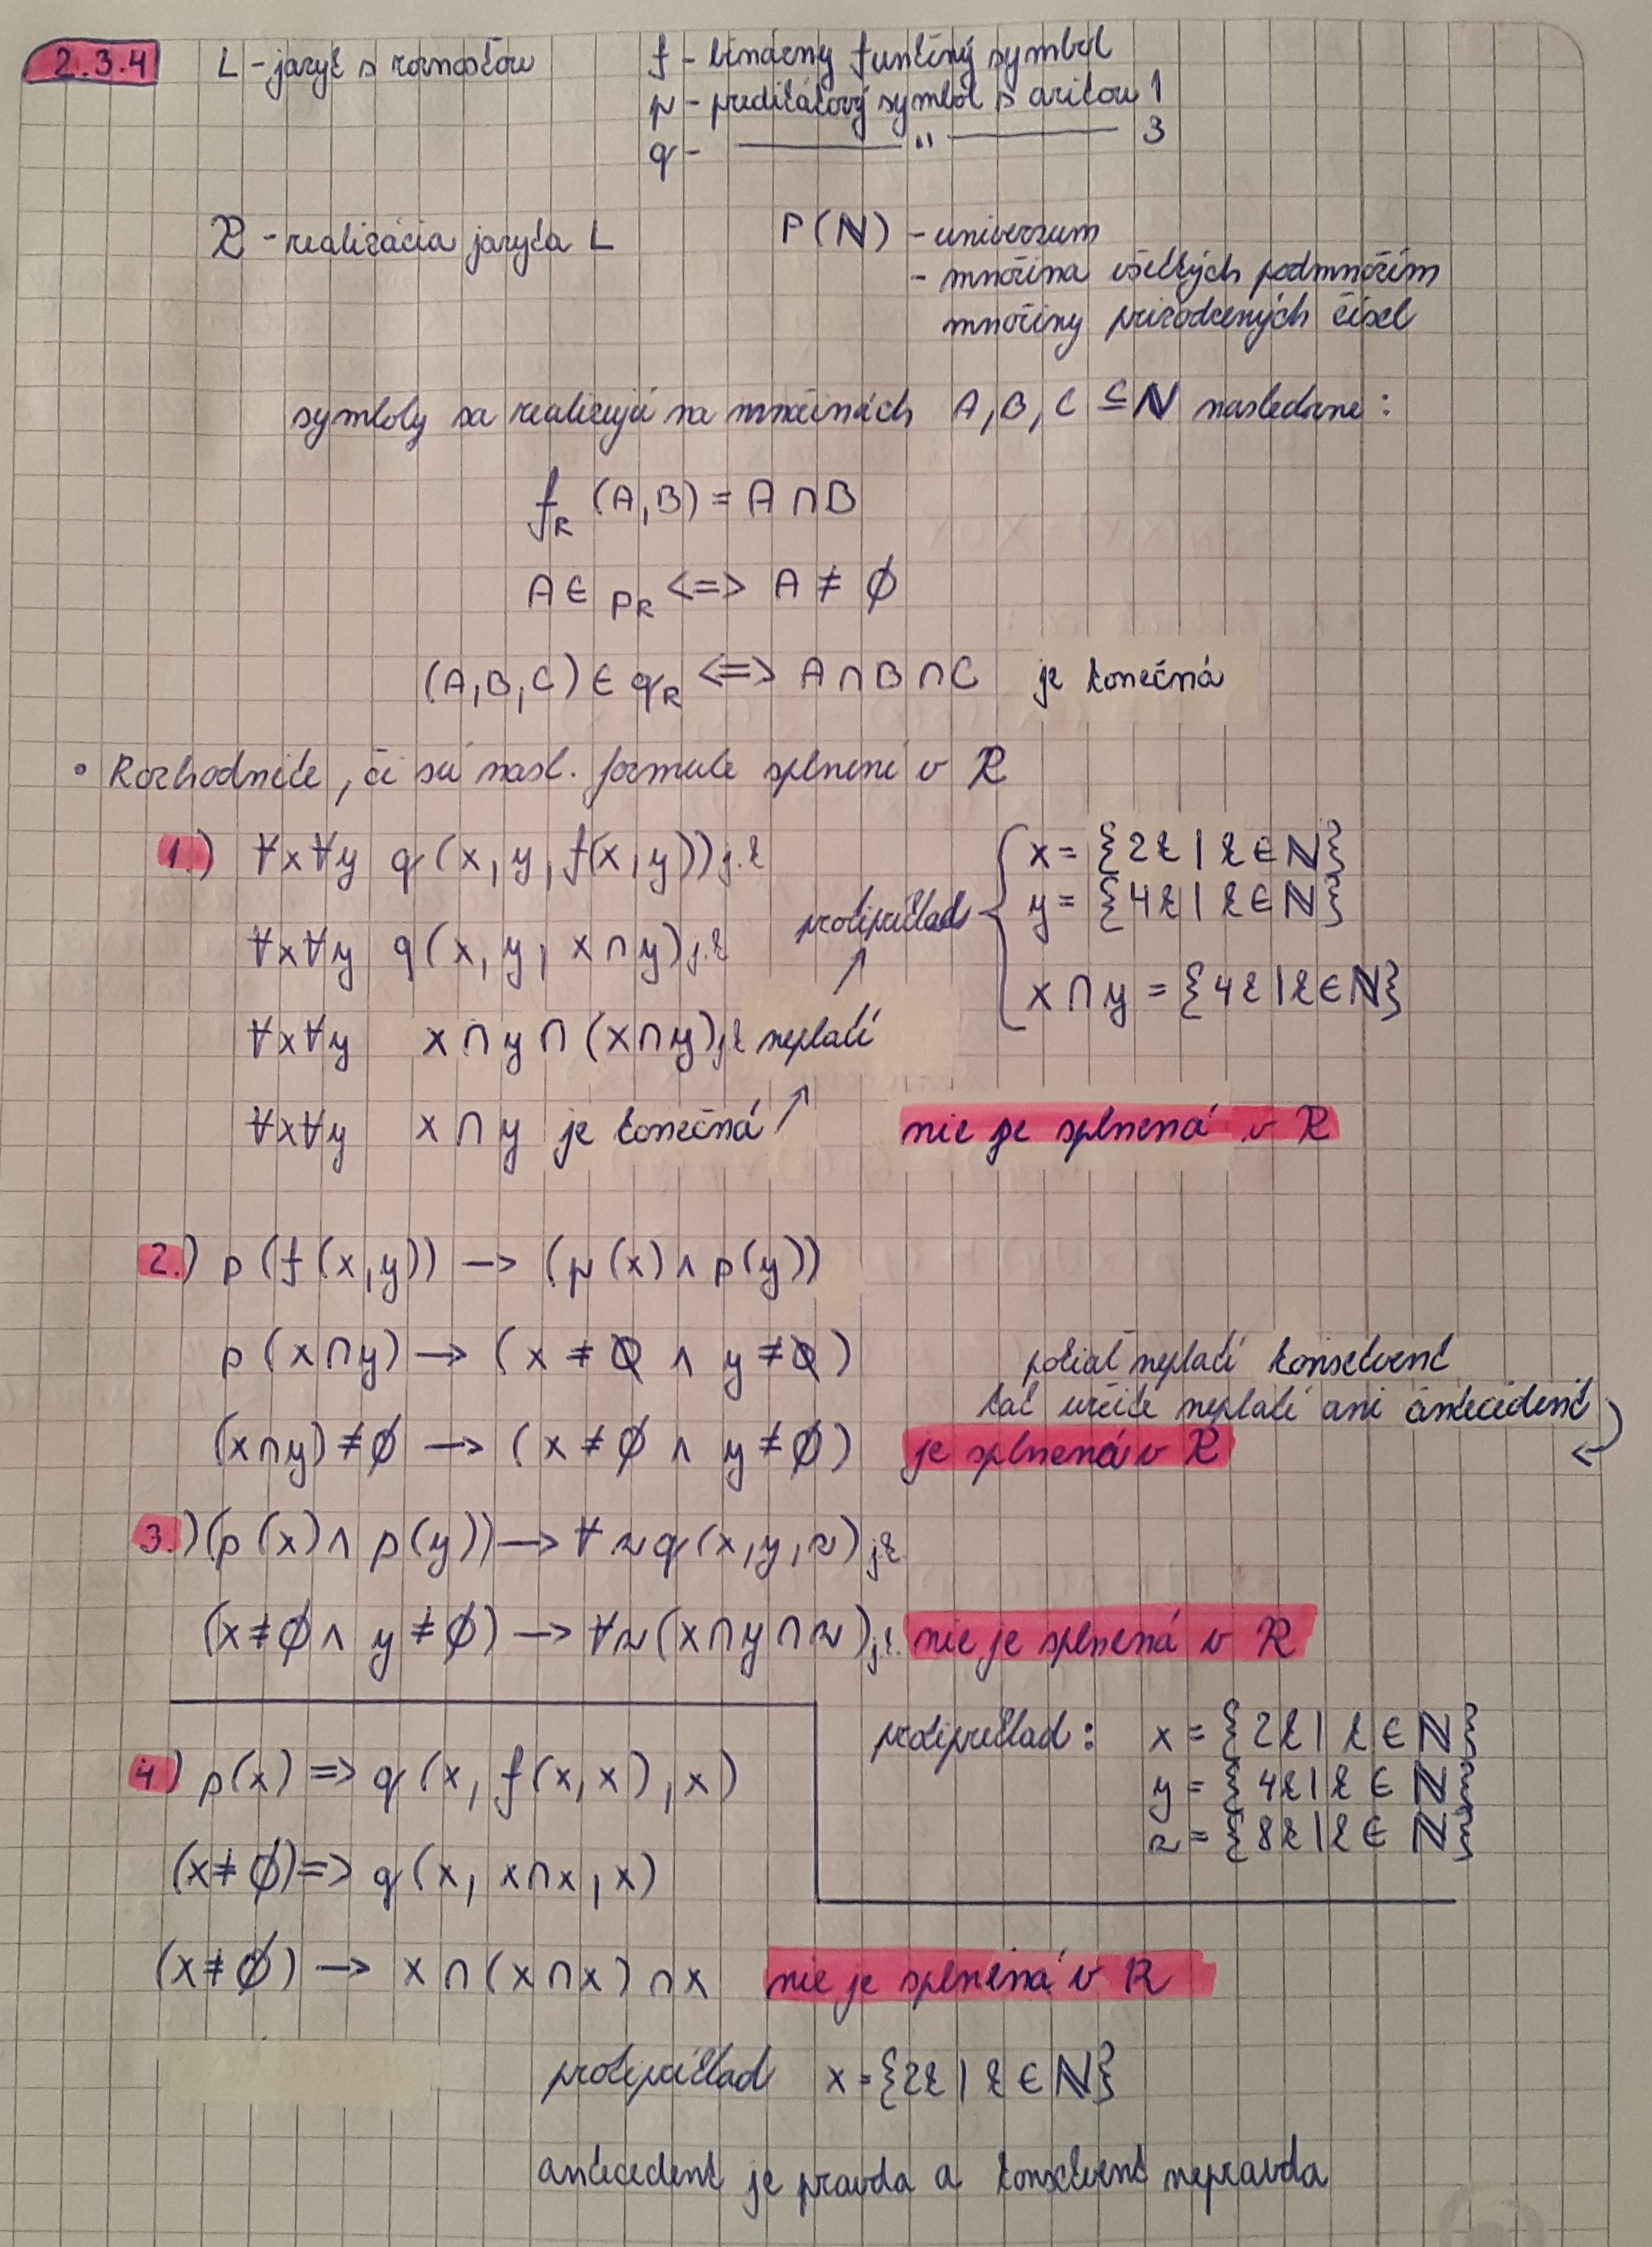 2.3.4 L - jazyk s rovnosťou f - binárny funkčný symbol
p - predikátový symbol s aritou 1
q - —— " —— 3
R - realizácia jazyka L P(ℕ) - univerzum
- množina všetkých podmnožín
množiny prirodzených čísel
symboly sa realizujú na množinách A, B, C ⊆ ℕ nasledovne :
f_R (A,B) = A ∩ B
A ∈ p_R <=> A ≠ ∅
(A,B,C) ∈ q_R <=> A ∩ B ∩ C je konečná
• Rozhodnite, či sú nasl. formule splnené v R
1.) ∀x∀y q(x, y, f(x,y)) j.k
∀x∀y q(x, y, x∩y) j.k
∀x∀y x∩y∩(x∩y) j.k neplatí
∀x∀y x∩y je konečná ↗
protipríklad { x = {2k | k∈ℕ}
y = {4k | k∈ℕ}
x∩y = {4k | k∈ℕ}
nie je splnená v R
2.) p(f(x,y)) → (p(x) ∧ p(y))
p(x∩y) → (x ≠ ∅ ∧ y ≠ ∅)
pokiaľ neplatí konsekvent
tak určite neplatí ani antecedent
(x∩y) ≠ ∅ → (x ≠ ∅ ∧ y ≠ ∅) je splnená v R
3.) (p(x) ∧ p(y)) → ∀z q(x,y,z) j.k.
(x ≠ ∅ ∧ y ≠ ∅) → ∀z (x∩y∩z) j.k. nie je splnená v R
protipríklad : x = {2k | k ∈ ℕ}
y = {4k | k ∈ ℕ}
z = {8k | k ∈ ℕ}
4.) p(x) => q(x, f(x,x), x)
(x ≠ ∅) => q(x, x∩x, x)
(x ≠ ∅) → x∩(x∩x)∩x nie je splnená v R
protipríklad x = {2k | k ∈ ℕ}
antecedent je pravda a konsekvent nepravda